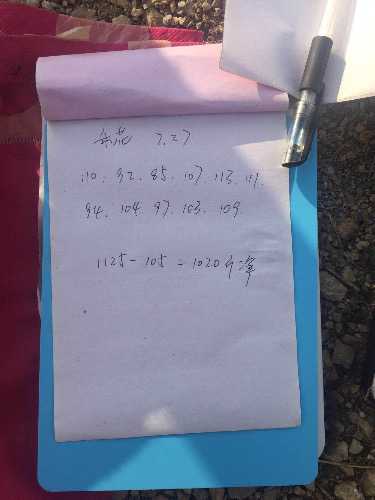 花 7.27
110. 92. 85. 107. 113. 111.
94. 104. 97. 103. 109.
1125-105=1020斤净